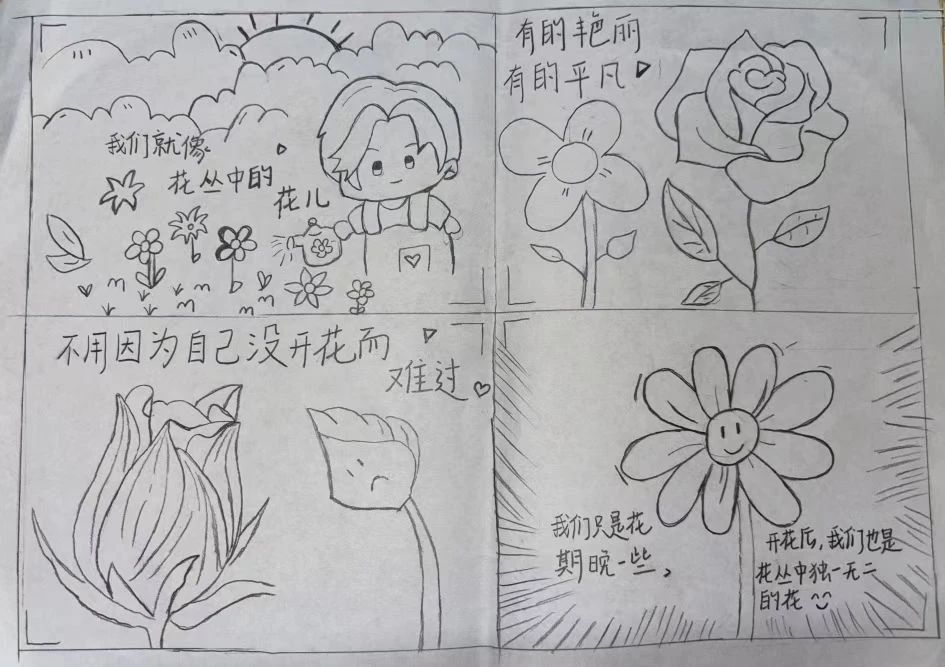 我们就像
花丛中的
花儿
有的艳丽
有的平凡
不用因为自己没开花而
难过
我们只是花
期晚一些,
开花后,我们也是
花丛中独一无二
的花